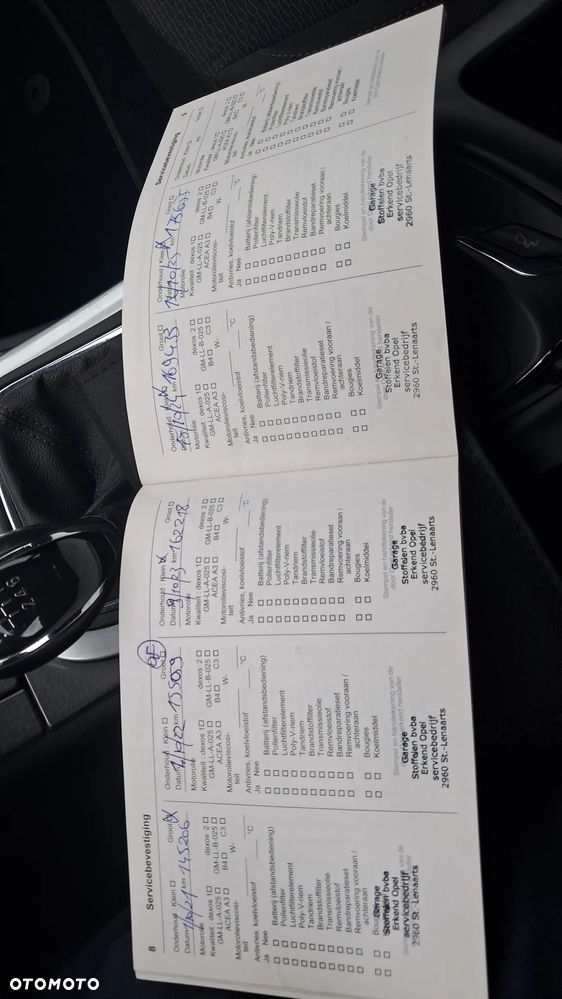 8 Servicebevestiging
Onderhoud Klein Groot X
Datum 145206 km
Motorolie
Kwaliteit: dexos 1 dexos 2
GM-LL-A-025 GM-LL-B-025
ACEA A3 B4 C3
Motorolieviscosi- W-
teit
Antivries, koelvloeistof °C
Ja Nee
Batterij (afstandsbediening)
Pollenfilter
Luchtfilterelement
Poly-V-riem
Tandriem
Brandstoffilter
Transmissieolie
Remvloeistof
Bandreparatieset
Remvoering vooraan /
achteraan
Garage
Stoffelen bvba
Erkend Opel
servicebedrijf
2960 St.-Lenaarts
Onderhoud Klein Groot
Datum km 155099
Motorolie
Kwaliteit: dexos 1 dexos 2
GM-LL-A-025 GM-LL-B-025
ACEA A3 B4 C3
Motorolieviscosi- W-
teit
Antivries, koelvloeistof °C
Ja Nee
Batterij (afstandsbediening)
Pollenfilter
Luchtfilterelement
Poly-V-riem
Tandriem
Brandstoffilter
Transmissieolie
Remvloeistof
Bandreparatieset
Remvoering vooraan /
achteraan
Bougies
Koelmiddel
Stempel en handtekening van de
Garage
Stoffelen bvba
Erkend Opel
servicebedrijf
2960 St.-Lenaarts
Onderhoud Klein X Groot
Datum 9/10/23 km 162218
Motorolie
Kwaliteit: dexos 1 dexos 2
GM-LL-A-025 GM-LL-B-025
ACEA A3 B4 C3
Motorolieviscosi- W-
teit
Antivries, koelvloeistof °C
Ja Nee
Batterij (afstandsbediening)
Pollenfilter
Luchtfilterelement
Poly-V-riem
Tandriem
Brandstoffilter
Transmissieolie
Remvloeistof
Bandreparatieset
Remvoering vooraan /
achteraan
Bougies
Koelmiddel
Stempel en handtekening van de
Garage
Stoffelen bvba
Erkend Opel
servicebedrijf
2960 St.-Lenaarts
Servicebevestiging 9
Onderhoud Groot
15/10/24 169433
Motorolie
Kwaliteit: dexos 1 dexos 2
GM-LL-A-025 GM-LL-B-025
ACEA A3 B4 C3
Motorolieviscosi- W-
teit
Antivries, koelvloeistof °C
Ja Nee
Batterij (afstandsbediening)
Pollenfilter
Luchtfilterelement
Poly-V-riem
Tandriem
Brandstoffilter
Transmissieolie
Remvloeistof
Bandreparatieset
Remvoering vooraan /
achteraan
Bougies
Koelmiddel
Stempel en handtekening van de
Garage
Stoffelen bvba
Erkend Opel
servicebedrijf
2960 St.-Lenaarts
Onderhoud Klein X Groot
km 175675
Motorolie
Kwaliteit: dexos 1 dexos 2
GM-LL-A-025 GM-LL-B-025
ACEA A3 B4 C3
Motorolieviscosi- W-
teit
Antivries, koelvloeistof °C
Ja Nee
Batterij (afstandsbediening)
Pollenfilter
Luchtfilterelement
Poly-V-riem
Tandriem
Brandstoffilter
Transmissieolie
Remvloeistof
Bandreparatieset
Remvoering vooraan /
achteraan
Bougies
Koelmiddel
Garage
Stoffelen bvba
Erkend Opel
servicebedrijf
2960 St.-Lenaarts
Onderhoud Klein Groot
Datum km
Motorolie
Antivries, koelvloeistof °C
Ja Nee
Batterij (afstandsbediening)
Pollenfilter
Luchtfilterelement
Poly-V-riem
Tandriem
Brandstoffilter
Transmissieolie
Remvloeistof
Bandreparatieset
Remvoering vooraan /
achteraan
Bougies
Koelmiddel
OTOMOTO